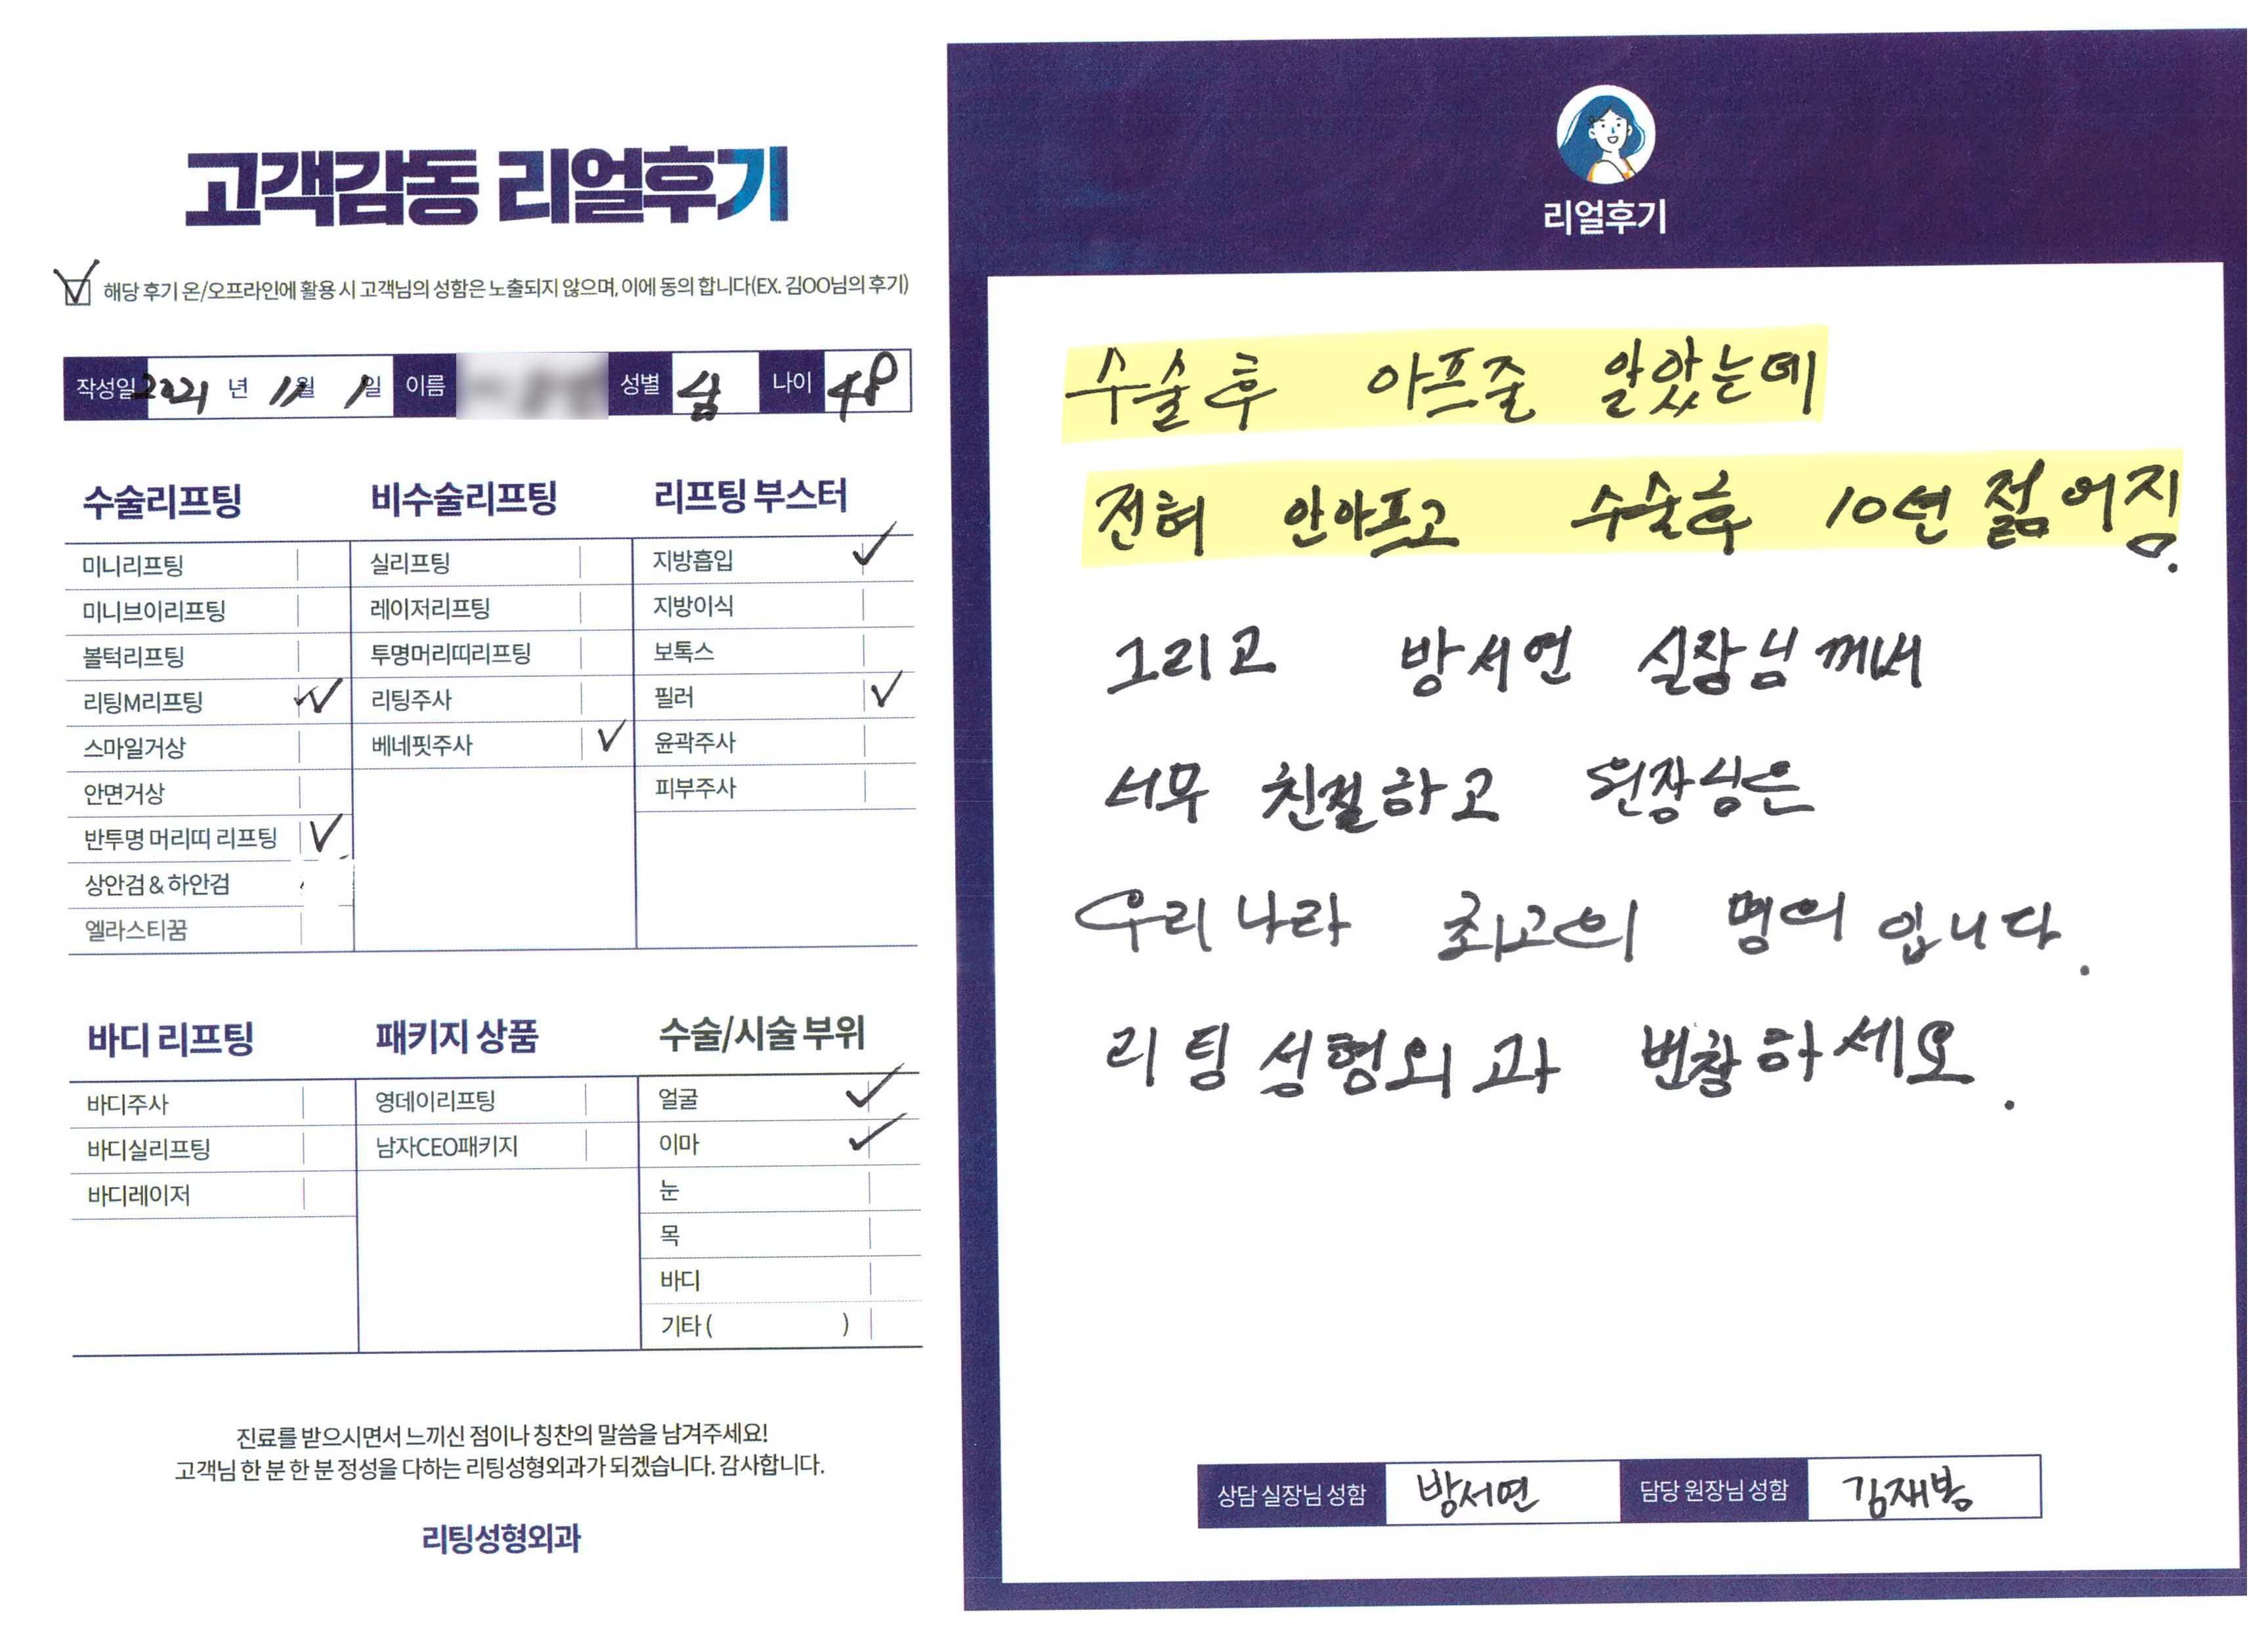 고객감동 리얼후기
해당 후기 온/오프라인에 활용 시 고객님의 성함은 노출되지 않으며, 이에 동의 합니다(EX. 김OO님의 후기)
작성일 2021 년 11 월 1 일 이름 성별 남 나이 48
수술리프팅
미니리프팅
미니브이리프팅
볼턱리프팅
리팅M리프팅
스마일거상
안면거상
반투명 머리띠 리프팅
상안검 & 하안검
엘라스티꿈
비수술리프팅
실리프팅
레이저리프팅
투명머리띠리프팅
리팅주사
베네핏주사
리프팅 부스터
지방흡입
지방이식
보톡스
필러
윤곽주사
피부주사
바디 리프팅
바디주사
바디실리프팅
바디레이저
패키지 상품
영데이리프팅
남자CEO패키지
수술/시술 부위
얼굴
이마
눈
목
바디
기타 ( )
진료를 받으시면서 느끼신 점이나 칭찬의 말씀을 남겨주세요!
고객님 한 분 한 분 정성을 다하는 리팅성형외과가 되겠습니다. 감사합니다.
리팅성형외과
리얼후기
수술후 아프줄 알았는데
전혀 안아프고 수술후 10년 젊어짐.
그리고 방서연 실장님께서
너무 친절하고 원장님은
우리나라 최고의 명의 입니다.
리팅성형외과 번창하세요.
상담 실장님 성함 방서연 담당 원장님 성함 김재봉